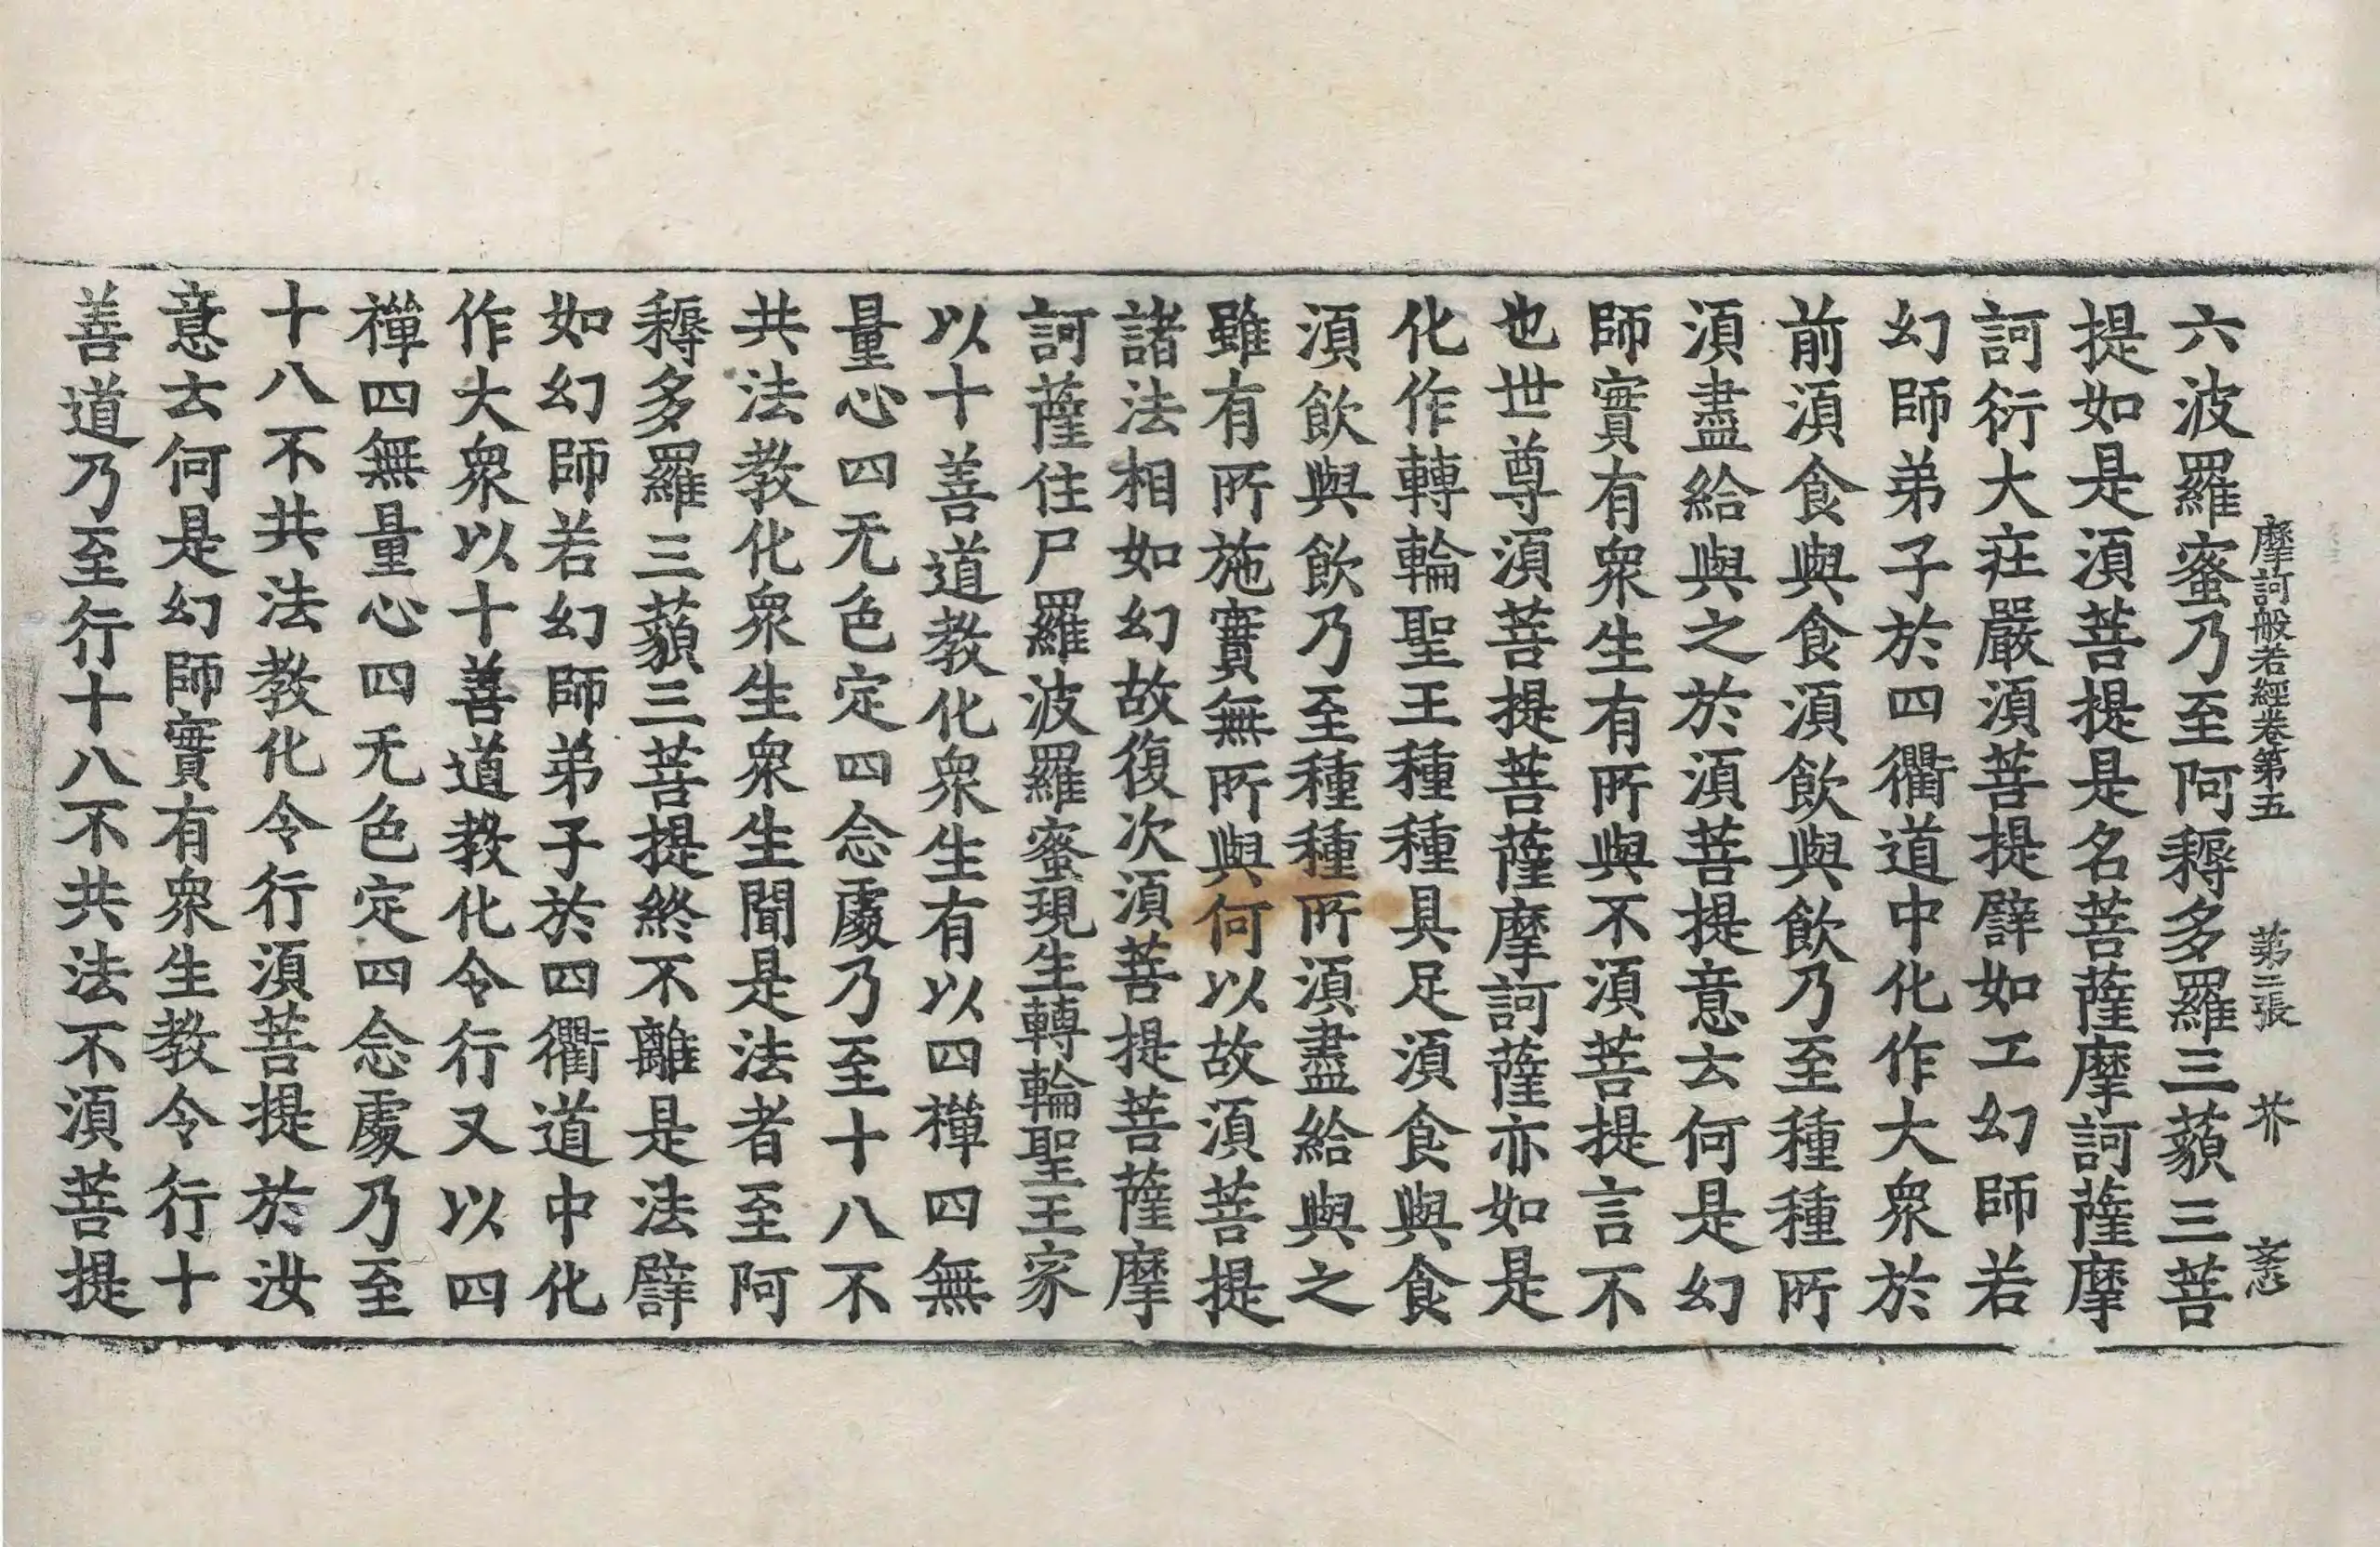 摩訶般若經卷第五 第三張 芥
六波羅蜜乃至阿耨多羅三藐三菩
提如是須菩提是名菩薩摩訶薩摩
訶衍大莊嚴須菩提譬如工幻師若
幻師弟子於四衢道中化作大衆於
前須食與食須飲與飲乃至種種所
須盡給與之於須菩提意云何是幻
師實有衆生有所與不須菩提言不
也世尊須菩提菩薩摩訶薩亦如是
化作轉輪聖王種種具足須食與食
須飲與飲乃至種種所須盡給與之
雖有所施實無所與何以故須菩提
諸法相如幻故復次須菩提菩薩摩
訶薩住尸羅波羅蜜現生轉輪聖王家
以十善道教化衆生有以四禪四無
量心四无色定四念處乃至十八不
共法教化衆生衆生聞是法者至阿
耨多羅三藐三菩提終不離是法譬
如幻師若幻師弟子於四衢道中化
作大衆以十善道教化令行又以四
禪四無量心四无色定四念處乃至
十八不共法教化令行須菩提於汝
意云何是幻師實有衆生教令行十
善道乃至行十八不共法不須菩提